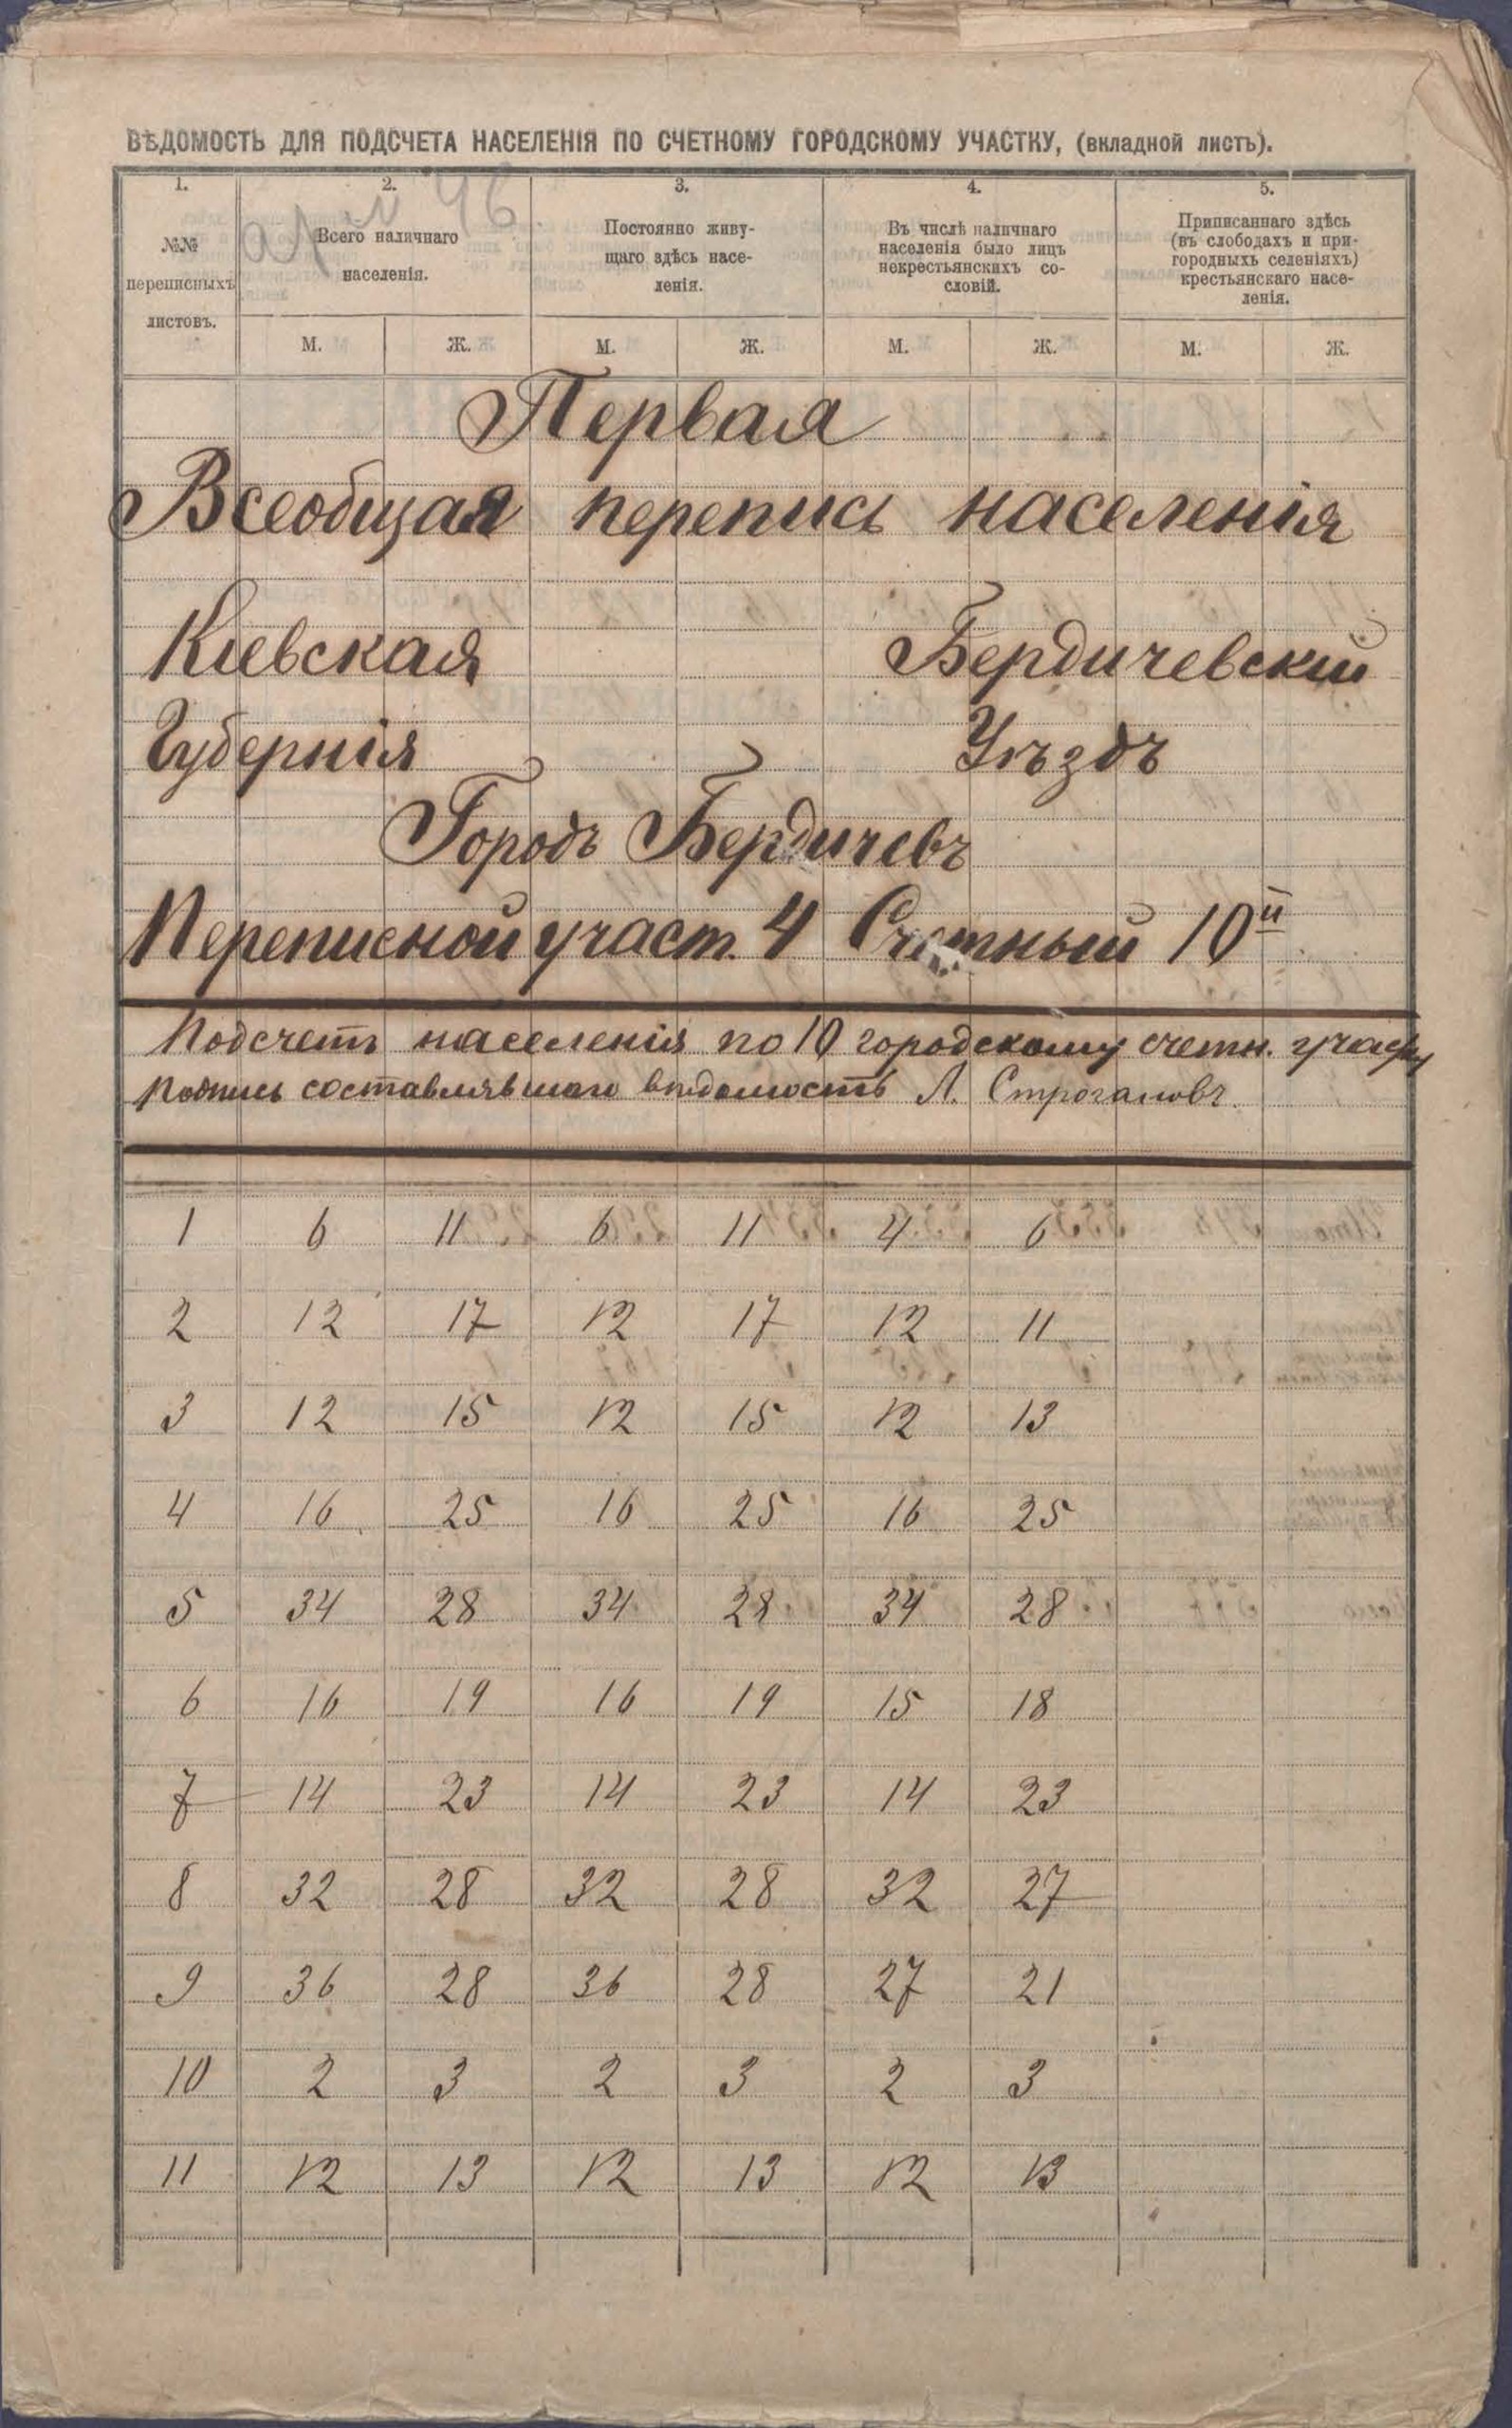 ВѢДОМОСТЬ ДЛЯ ПОДСЧЕТА НАСЕЛЕНІЯ ПО СЧЕТНОМУ ГОРОДСКОМУ УЧАСТКУ, (вкладной листъ).
1. 2. 3. 4. 5.
№ 46
№№
переписныхъ
листовъ.
Всего наличнаго
населенія.
Постоянно живу-
щаго здѣсь насе-
ленія.
Въ числѣ наличнаго
населенія было лицъ
некрестьянскихъ со-
словій.
Приписаннаго здѣсь
(въ слободахъ и при-
городныхъ селеніяхъ)
крестьянскаго насе-
ленія.
М. Ж. М. Ж. М. Ж. М. Ж.
Первая
Всеобщая перепись населенія
Кіевская Бердичевскій
Губернія Уѣздъ
Городъ Бердичевъ
Переписной участ. 4 Счетный 10й
Подсчетъ населенія по 10 городскому счетн. участку
Подпись составлявшаго вѣдомость Л. Строгановъ.
1 6 11 6 11 4 6
2 12 17 12 17 12 11
3 12 15 12 15 12 13
4 16 25 16 25 16 25
5 34 28 34 28 34 28
6 16 19 16 19 15 18
7 14 23 14 23 14 23
8 32 28 32 28 32 27
9 36 28 36 28 27 21
10 2 3 2 3 2 3
11 12 13 12 13 12 13